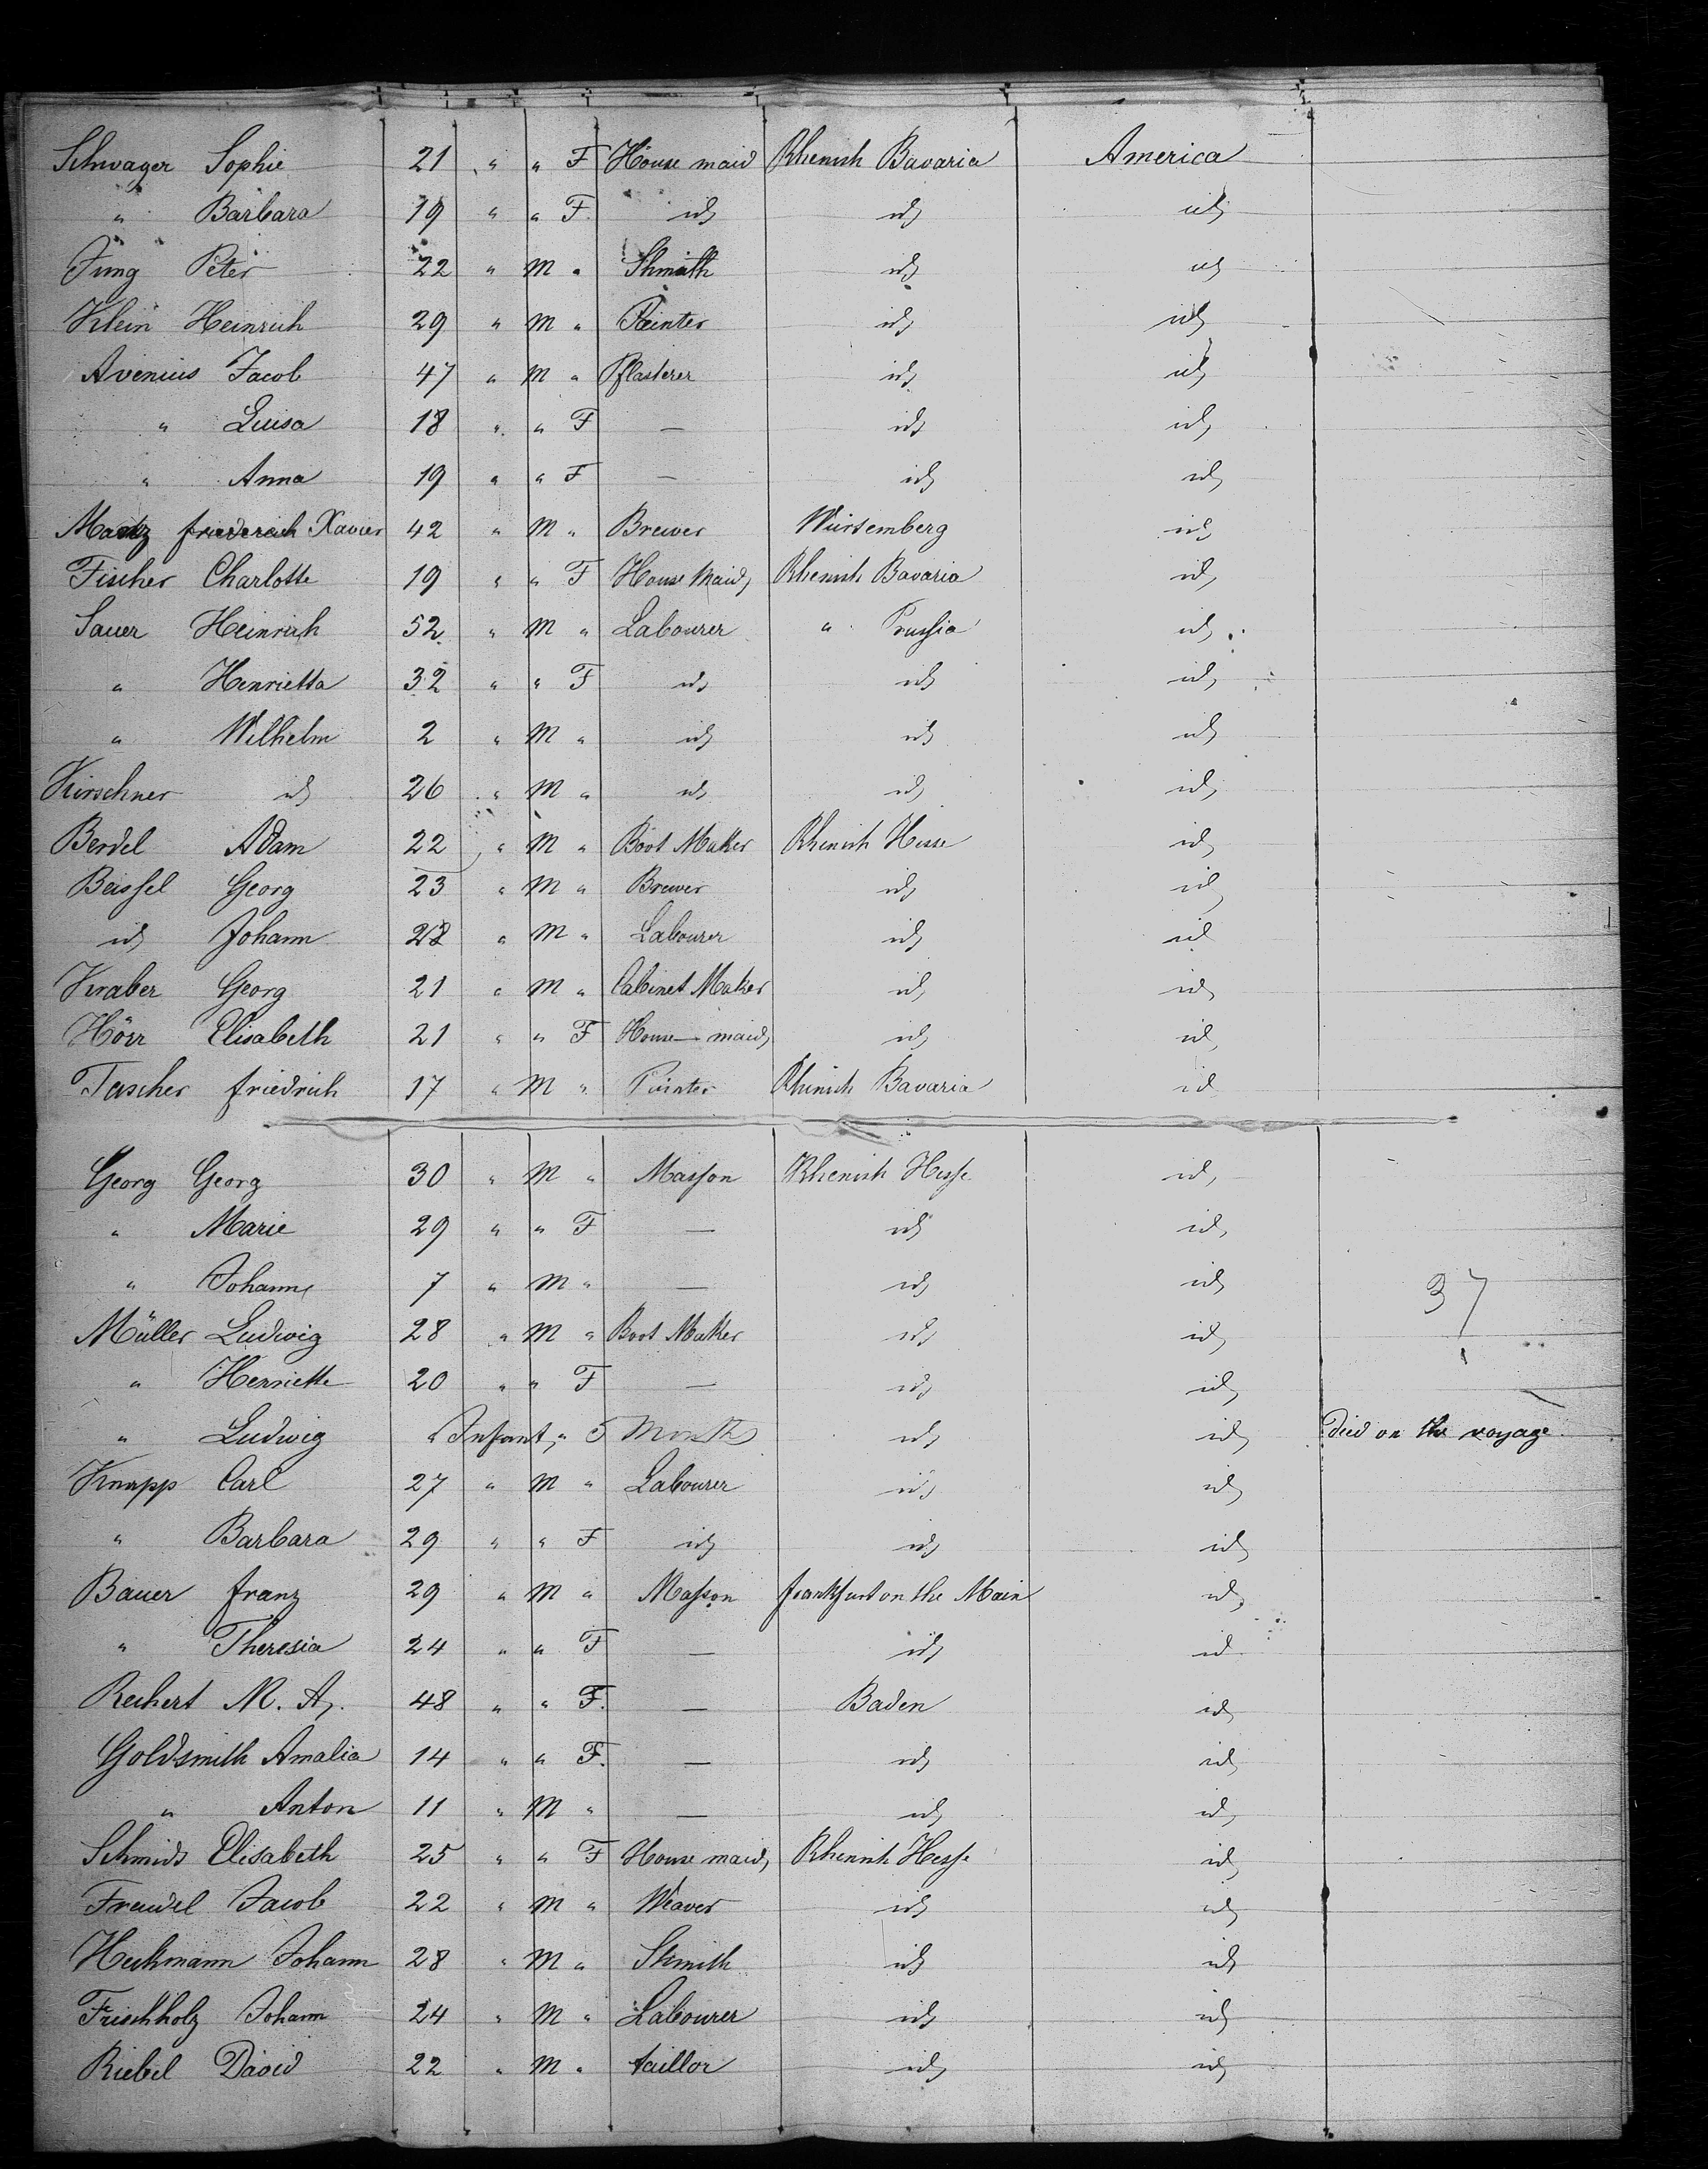 Schwager Sophie 21 " " F House maid Rhenish Bavaria America
" Barbara 19 " " F id id id
Jung Peter 22 " M " Shmith id id
Klein Heinrich 29 " M " Painter id id
Avenius Jacob 47 " M " Pflasterer id id
" Luisa 18 " " F — id id
" Anna 19 " " F — id id
Xavier 42 " M " Brewer Würtemberg id
Fischer Charlotte 19 " " F House Maid Rhenish Bavaria id
Sauer Heinrich 52 " M " Labourer " Prussia id
" Henrietta 32 " " F id id id
" Wilhelm 2 " M " id id id
Kirschner id 26 " M " id id id
Berdel Adam 22 " M " Boot Maker Rhenish Hesse id
Beissel Georg 23 " M " Brewer id id
id Johann 28 " M " Labourer id id
Kraber Georg 21 " M " Cabinet Maker id id
Hörr Elisabeth 21 " " F House-maid id id
Tascher friedrich 17 " M " Painter Rhenish Bavaria id
Georg Georg 30 " M " Masson Rhenish Hesse id
" Marie 29 " " F — id id
" Johann 7 " M " — id id 37
Müller Ludwig 28 " M " Boot Maker id id
" Henriette 20 " " F — id id
" Ludwig " Infant, " 5 Month id id died on the voyage
Knapp Carl 27 " M " Labourer id id
" Barbara 29 " " F id id id
Bauer franz 29 " M " Masson frankfurt on the Main id
" Theresia 24 " " F — id id
Reichert M. A. 48 " " F. — Baden id
Goldsmith Amalia 14 " " F. — id id
" Anton 11 " M " — id id
Schmidt Elisabeth 25 " " F House maid Rhenish Hesse id
Freudel Jacob 22 " M " Weaver id id
Heckmann Johann 28 " M " Shmith id id
Frischholz Johann 24 " M " Labourer id id
Riebel David 22 " M " taillor id id